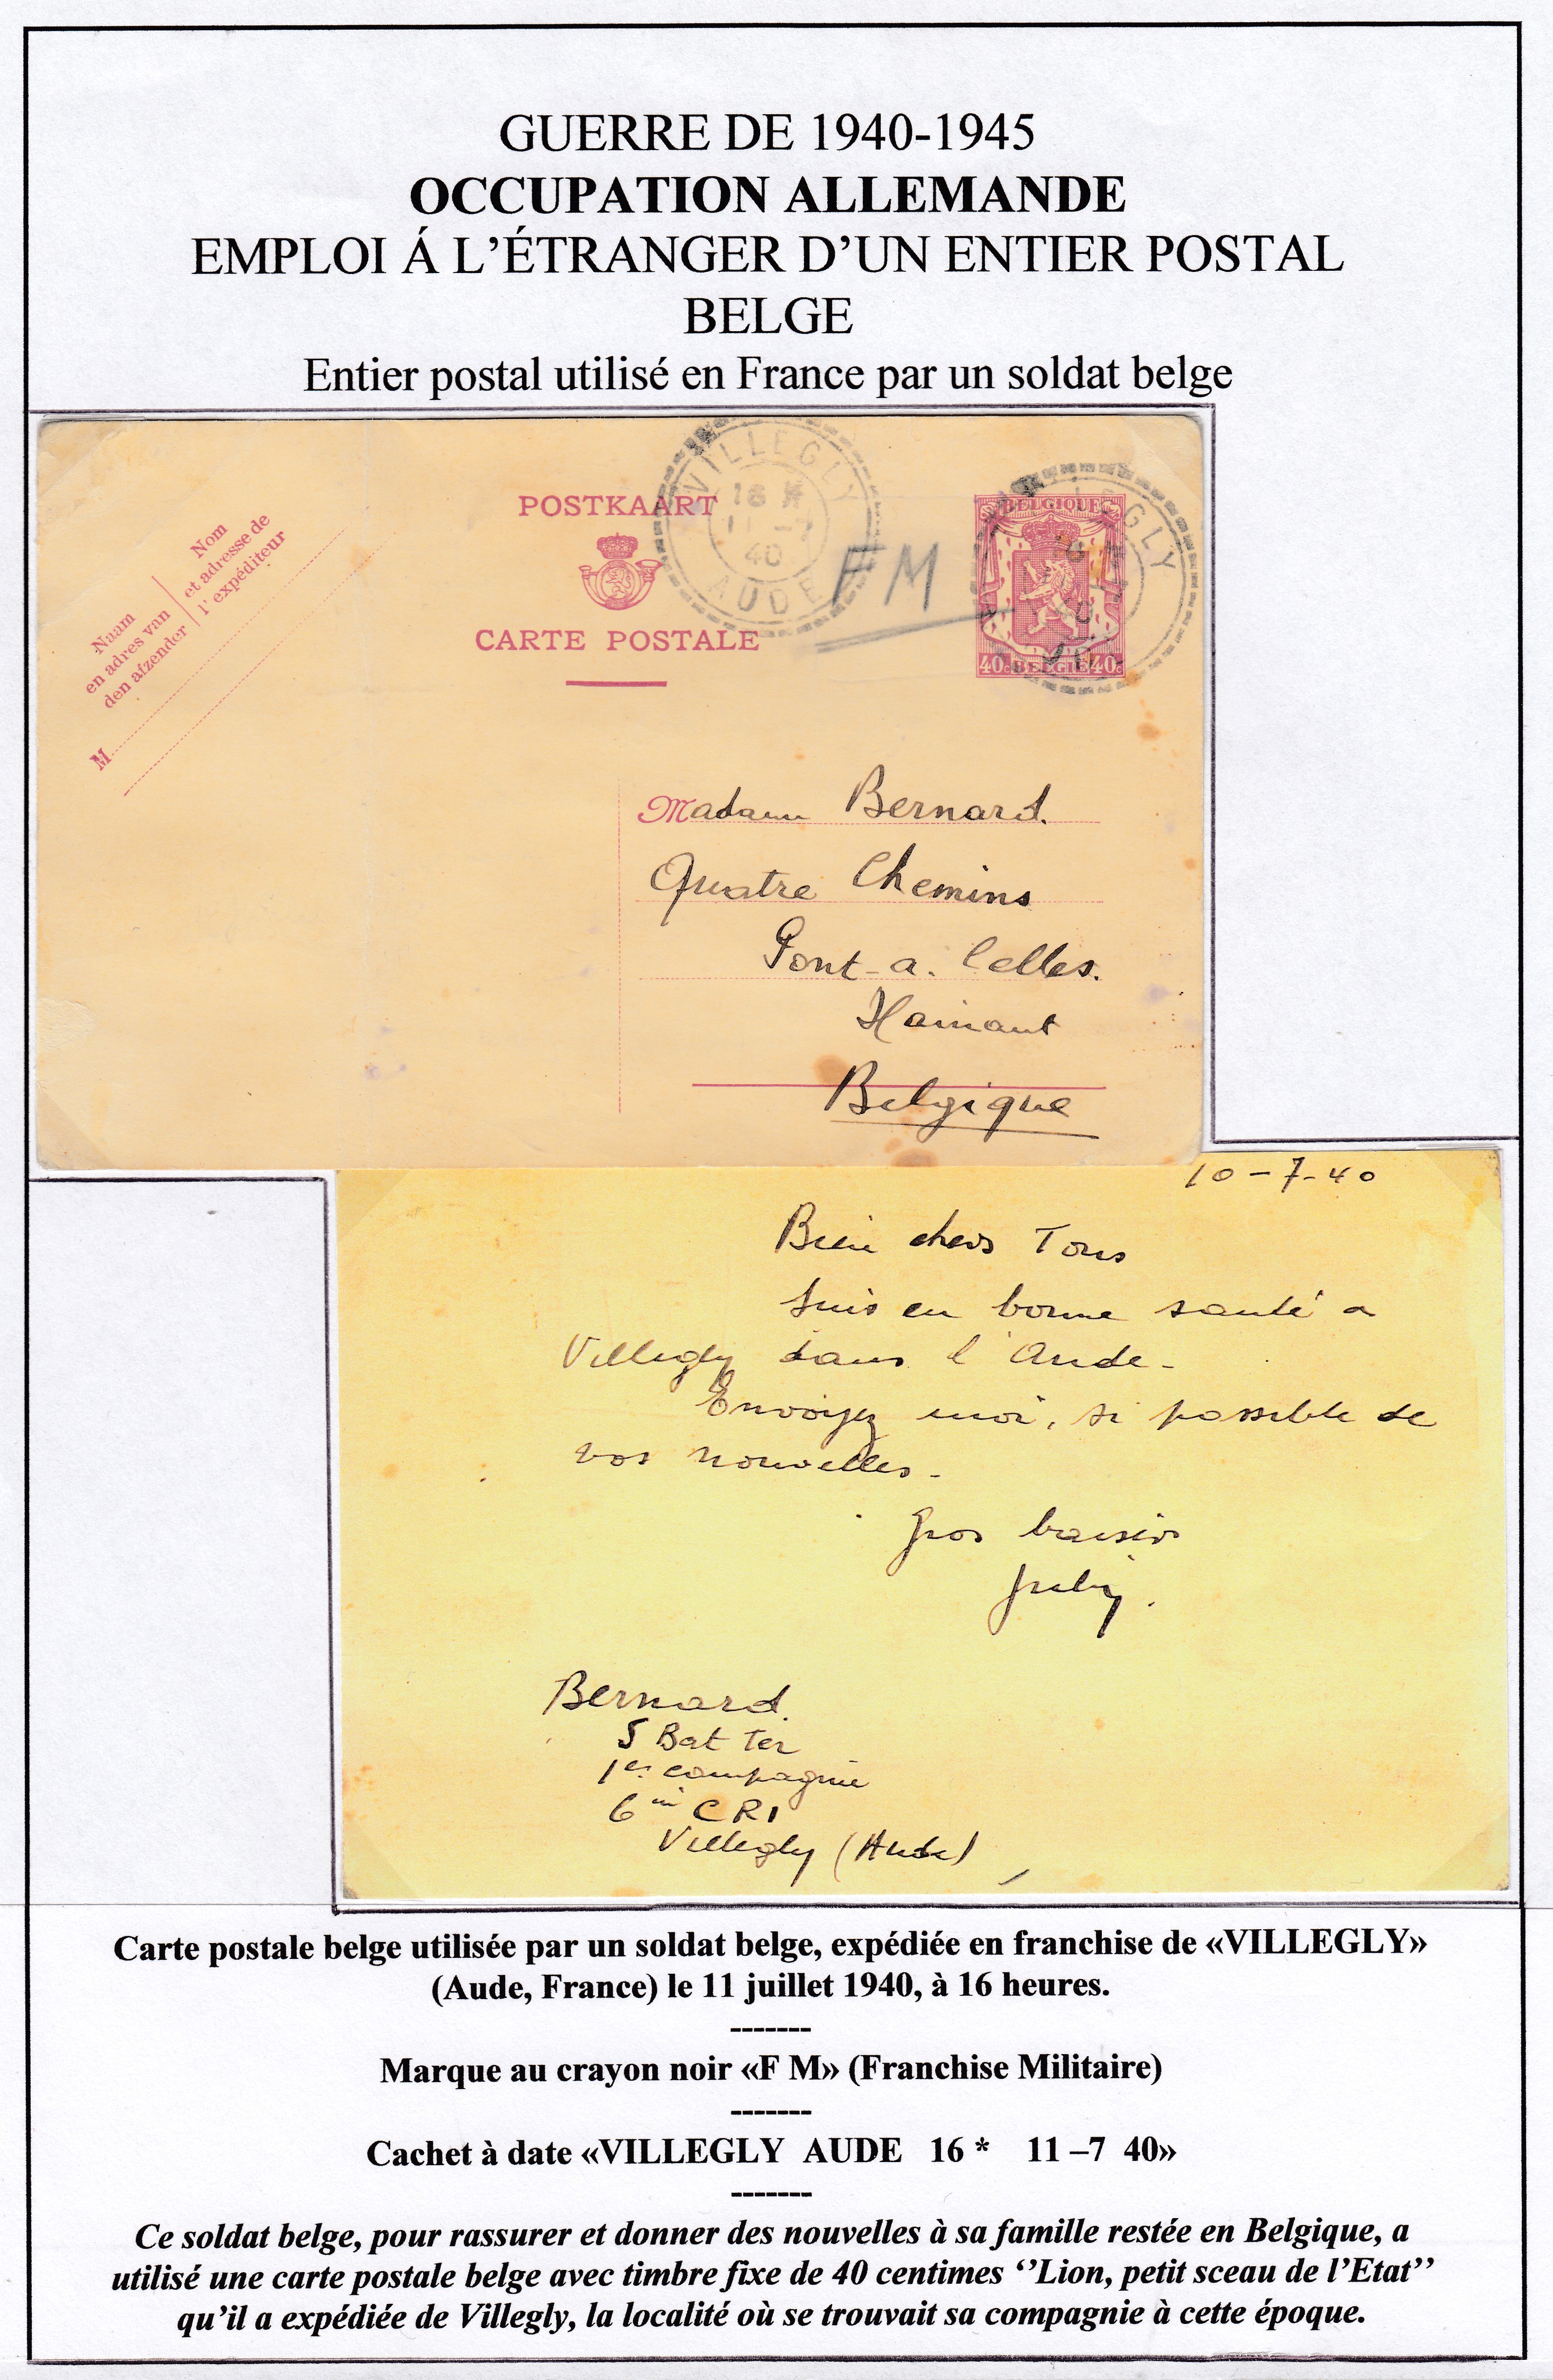 GUERRE DE 1940-1945
OCCUPATION ALLEMANDE
EMPLOI Á L’ÉTRANGER D’UN ENTIER POSTAL
BELGE
Entier postal utilisé en France par un soldat belge
VILLEGLY
16 *
11 -7
40
AUDE
POSTKAART
CARTE POSTALE
FM
BELGIQUE
40c BELGIE 40c
Naam
en adres van
den afzender
Nom
et adresse de
l'expéditeur
M
Madame Bernard.
Quatre Chemins
Pont-a-Celles.
Hainaut
Belgique
10-7-40
Bien chers Tous
Suis en bonne santé a
Villegly dans l'Aude-
Envoyez moi, si possible de
vos nouvelles-
Gros baisers
Bernard.
5 Bat Ter
1er compagnie
6me CRI
Villegly (Aude)
Carte postale belge utilisée par un soldat belge, expédiée en franchise de «VILLEGLY»
(Aude, France) le 11 juillet 1940, à 16 heures.
-------
Marque au crayon noir «F M» (Franchise Militaire)
-------
Cachet à date «VILLEGLY AUDE 16 * 11 –7 40»
-------
Ce soldat belge, pour rassurer et donner des nouvelles à sa famille restée en Belgique, a
utilisé une carte postale belge avec timbre fixe de 40 centimes ‘’Lion, petit sceau de l’Etat’’
qu’il a expédiée de Villegly, la localité où se trouvait sa compagnie à cette époque.